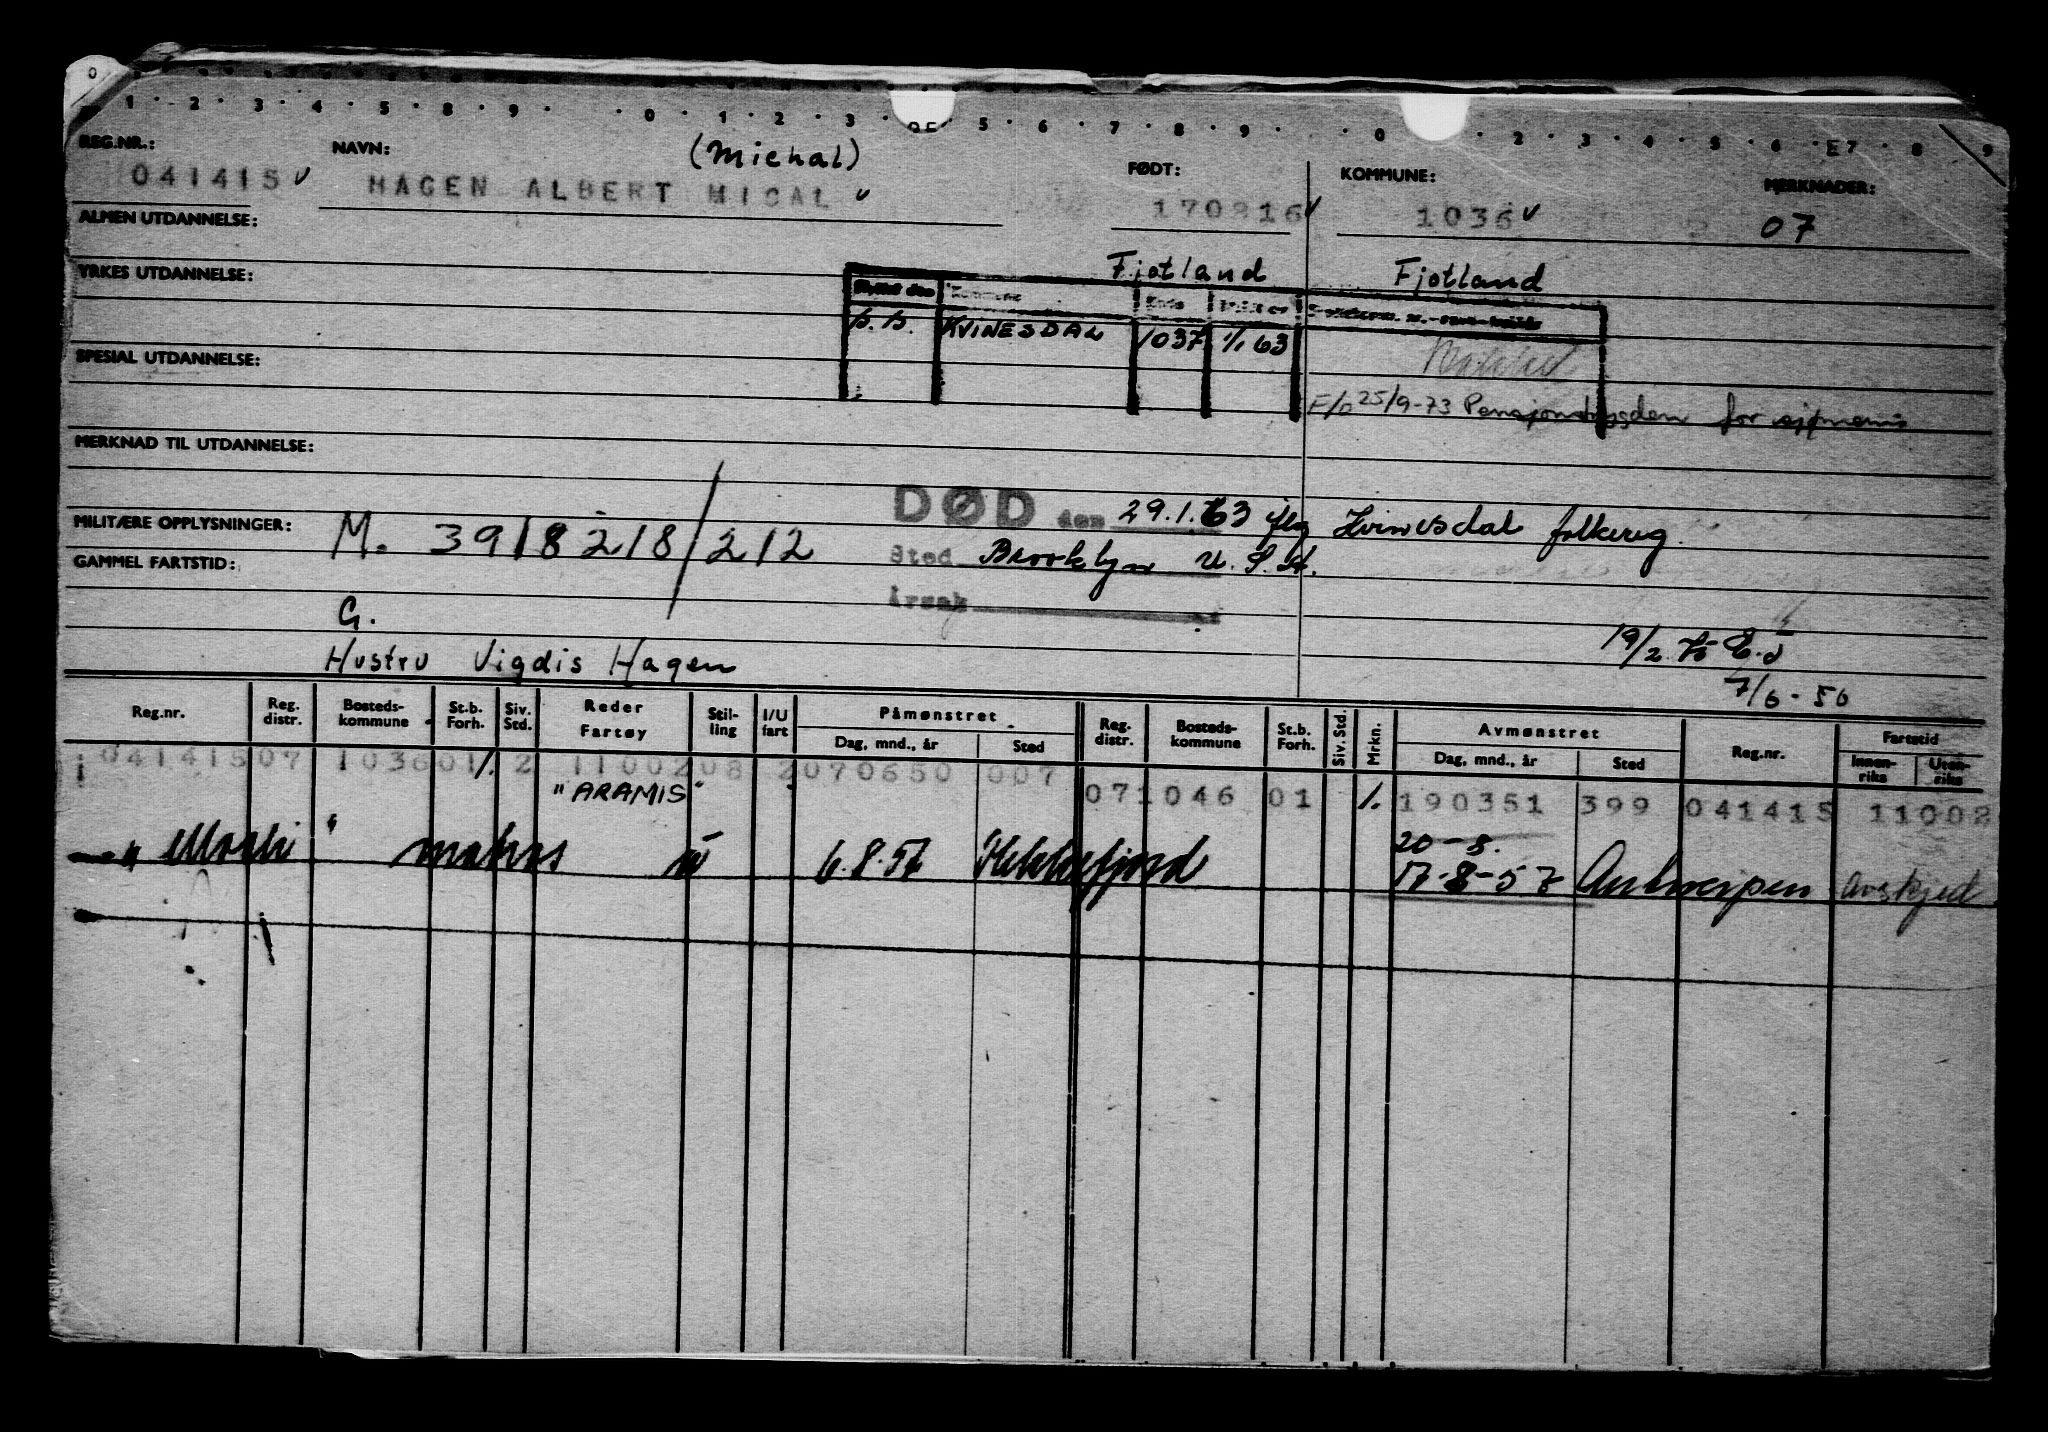 0
1 2 3 4 5 8 9 0 1 2 3 5 6 7 8 9 0 2 3 4 5 6 E7 8 9
REG.NR.: NAVN: (Michal) FØDT: KOMMUNE: MERKNADER:
041415 HAGEN ALBERT MICAL 170816 1036 07
ALMEN UTDANNELSE:
YRKES UTDANNELSE: Fjotland Fjotland
KVINESDAL 1037 1/1 63
SPESIAL UTDANNELSE:
25/9-73 Pensjonstrygden for sjømenn
MERKNAD TIL UTDANNELSE:
DØD den 29.1.63 iflg Kvinesdal folkereg.
MILITÆRE OPPLYSNINGER: M. 3918218/212
Sted Brooklyn U.S.A.
GAMMEL FARTSTID:
Årsak
G.
19/2
Hustru Vigdis Hagen
7/6-50
Reg.nr. Reg. distr. Bosteds-kommune St.b. Forh. Siv. Std. Reder Fartøy Stil-ling I/U fart Påmønstret Dag, mnd., år Sted Reg. distr. Bosteds-kommune St.b. Forh. Siv. Std. Mrkn. Avmønstret Dag, mnd., år Sted Reg.nr. Fartstid Innen-riks Uten-riks
041415 07 1036 01 2 11002 08 2 070650 007
"ARAMIS" 07 1046 01 190351 399 041415 11002
20-5.
"Moshi" matros u 6.8.57 Flekkefjord 17-8-57 Antwerpen Avskjed